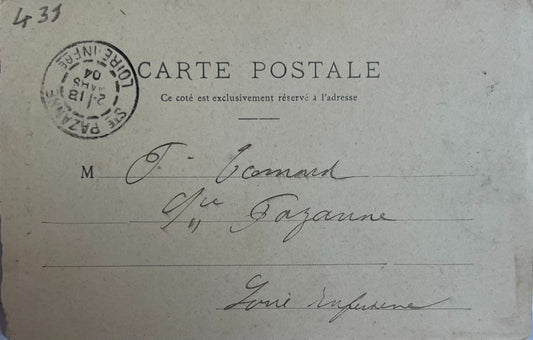 439
STE PAZANNE LOIRE-INFRE
2E/18
MARS
04
CARTE POSTALE
Ce coté est exclusivement réservé à l'adresse
M
Ste Pazanne
Loire Inférieure